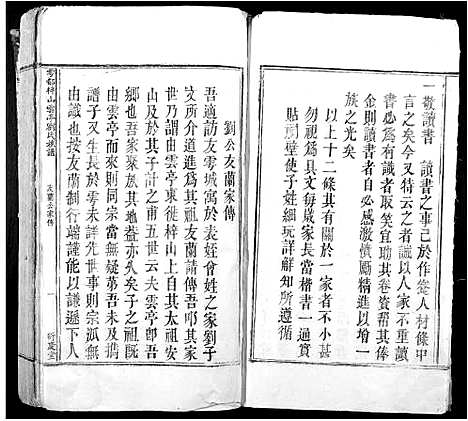 一敬讀書　讀書之事已於作養人材條中
言之矣今又特云之者誠以人家不重讀
書必爲有識者取笑宜助其卷資幇其俸
金則讀書者自必感激憤勵精進而光增一
族之光矣
以上十二條其有關於一家者不小甚
勿視爲具文每歲家長當督書一通實
貼祠壁使子姓細玩詳解知所遵循
劉公友蘭家傳
吾適訪友雩城寓於表姪會姓之家劉子
文所介道進爲其祖友蘭請傳吾叩其家
世乃謂由雲亭東徙梓山上自其太祖安
及於其子計之甫五世云夫雲亭郎吾
鄉也吾家聚族其地蓋亦久矣子之祖旣
由雲亭而來則同宗當無疑第吾未及考
譜子又生長於雩未詳先世事則宗派無
由識也按友蘭制行端謹能以謙遜下人
雩都梓山雲亭劉氏族譜
友蘭公家傳